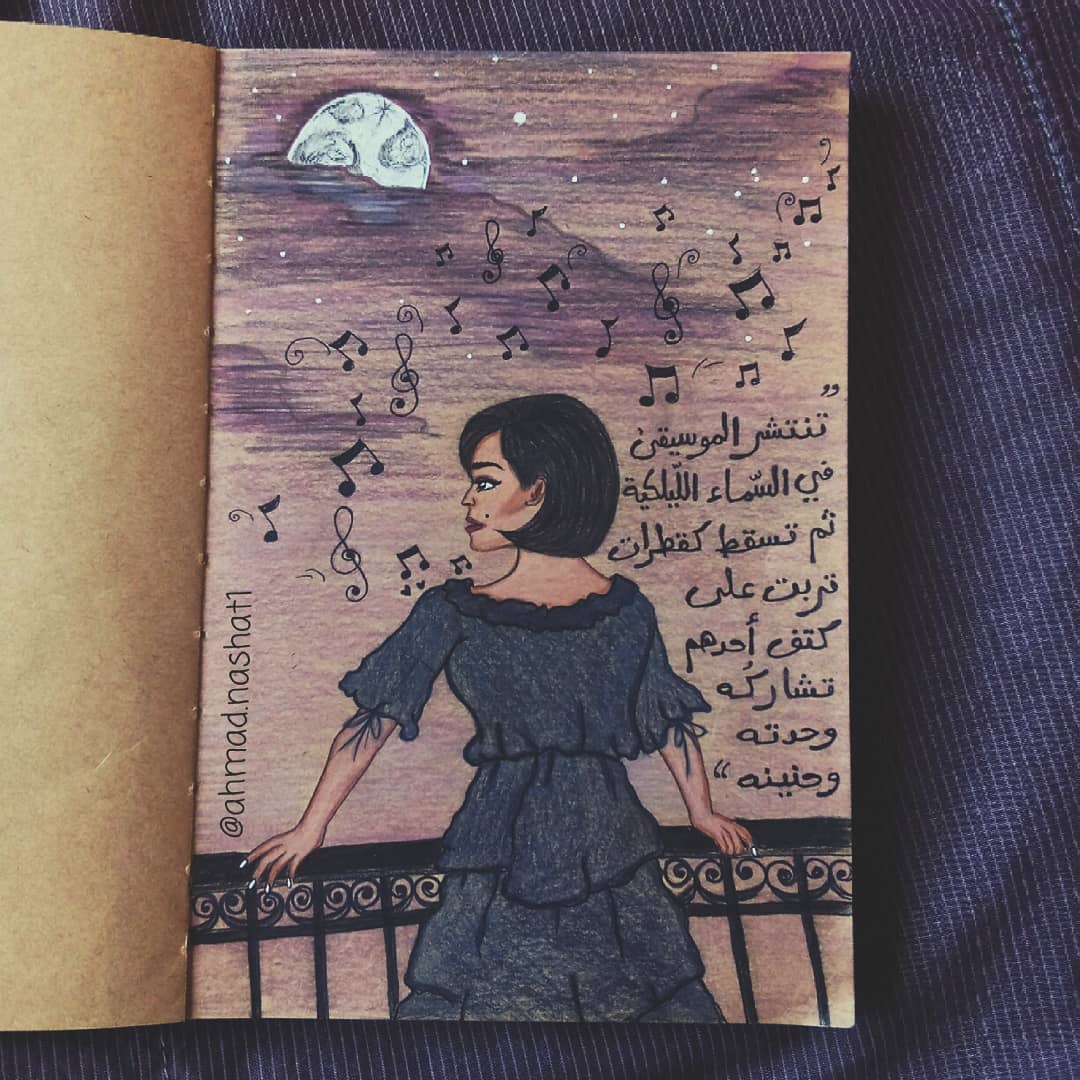 „
تنتشر الموسيقىٰ
في السّماء اللّيلكية
ثم تسقط كقطرات
تربت على
كتف أحدهم
تشاركُه
وحدته
وحنينه “
@ahmad.nashat1